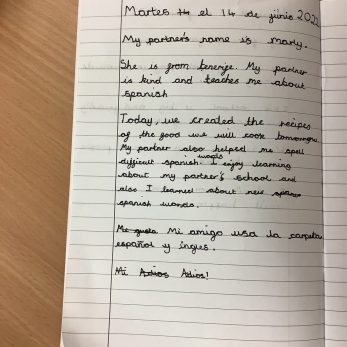 Martes 14 el 14 de júnio 2022
My partner's name is Marly.
She is from tenerife. My partner
is kind and teaches me about
spanish
Today, we created the recipes
of the food we will cook tomorrow.
My partner also helped me spell
difficult spanish words. I enjoy learning
about my partner's school and
also I learned about new
spanish words.
Me gusta Mi amigo usa la carpeta
español y ingles.
Mi Adios Adios!